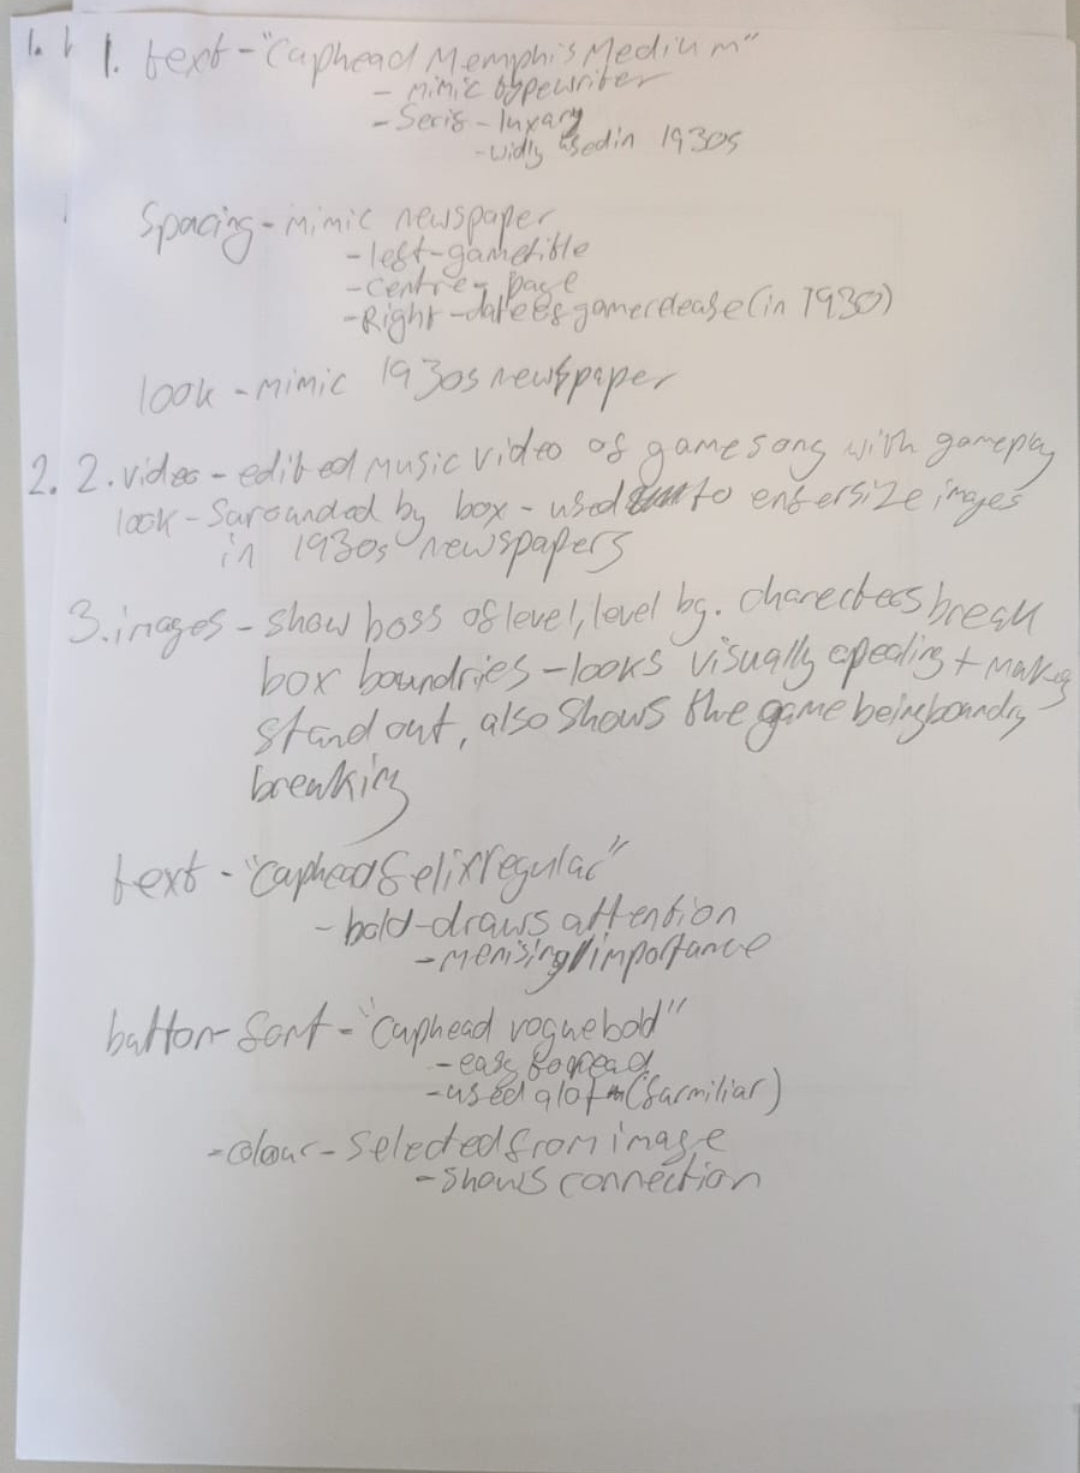 1. 1. text - "Cuphead Memphis Medium"
- mimic typewriter
- Serif - luxary
- widly used in 1930s
Spacing - mimic newspaper
- left - gametitle
- centre - page
- Right - date of game release (in 1930)
look - mimic 1930s newspaper
2. 2. video - edited music video of game song with gameplay
look - Sarounded by box - used to enfersize images
in 1930s newspapers
3. images - show boss of level, level bg. charecters break
box boundries - looks visually apealing + makes
stand out, also shows the game being boundry
breaking
text - "Cuphead felix regular"
- bold - draws attention
- menising/importance
button font - "Cuphead vogue bold"
- easy to read
- used a lot (farmiliar)
- colour - selected from image
- shows connection